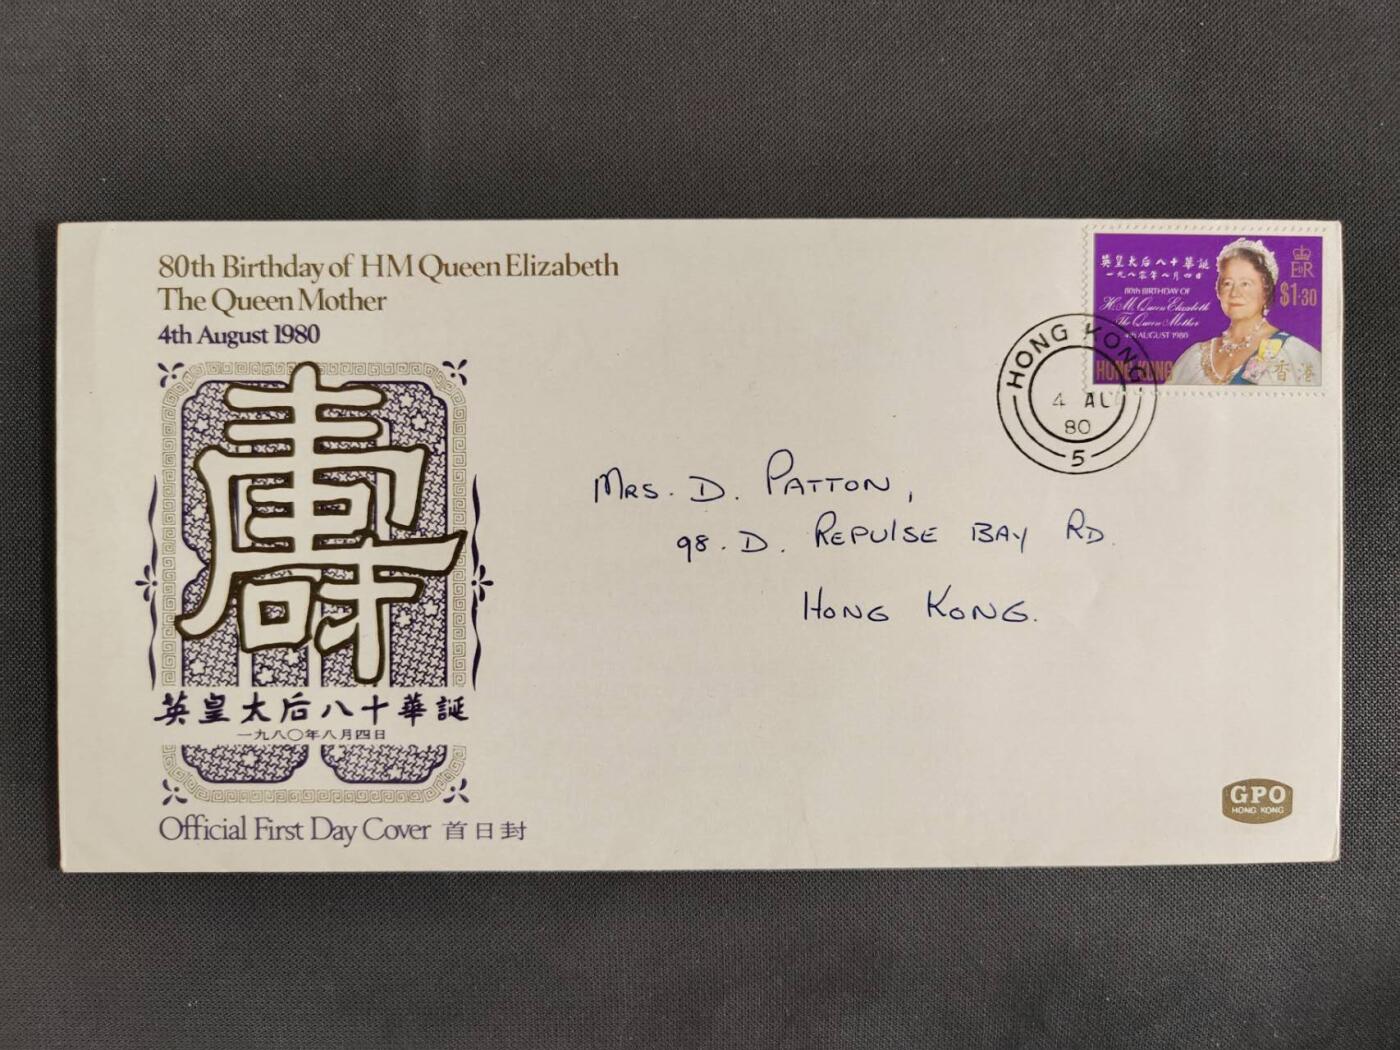 80th Birthday of HM Queen Elizabeth
The Queen Mother
4th August 1980
壽
英皇太后八十華誕
一九八〇年八月四日
Official First Day Cover 首日封
英皇太后八十華誕
一九八零年八月四日
80th BIRTHDAY OF
H.M. Queen Elizabeth
The Queen Mother
4th AUGUST 1980
HONG KONG
E II R
$1·30
香港
HONG KONG
4 AU
80
5
MRS. D. PATTON,
98. D. REPULSE BAY RD.
HONG KONG.
GPO
HONG KONG